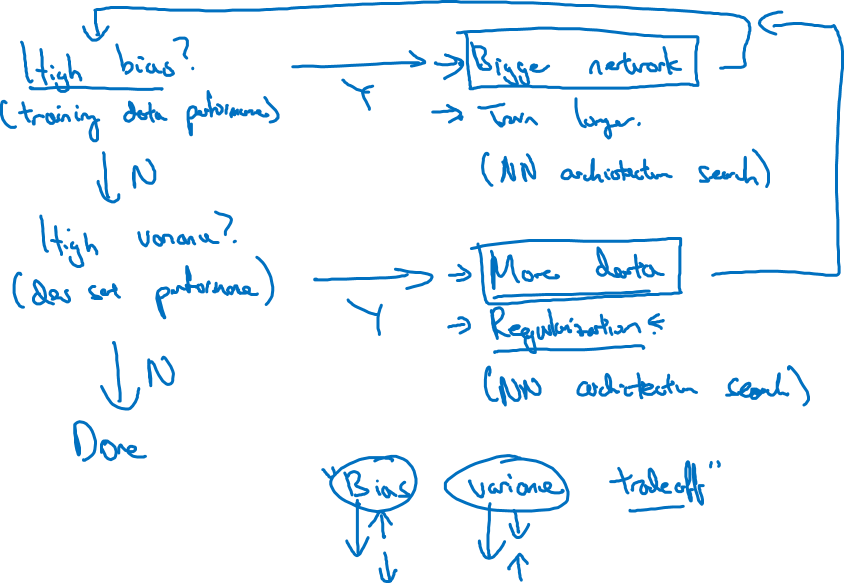 High bias?
(training data performance)
Y
→ Bigger network
→ Train longer.
(NN architecture search)
N
High variance?
(dev set performance)
Y
→ More data
→ Regularization.
(NN architecture search)
N
Done
"Bias variance tradeoff"